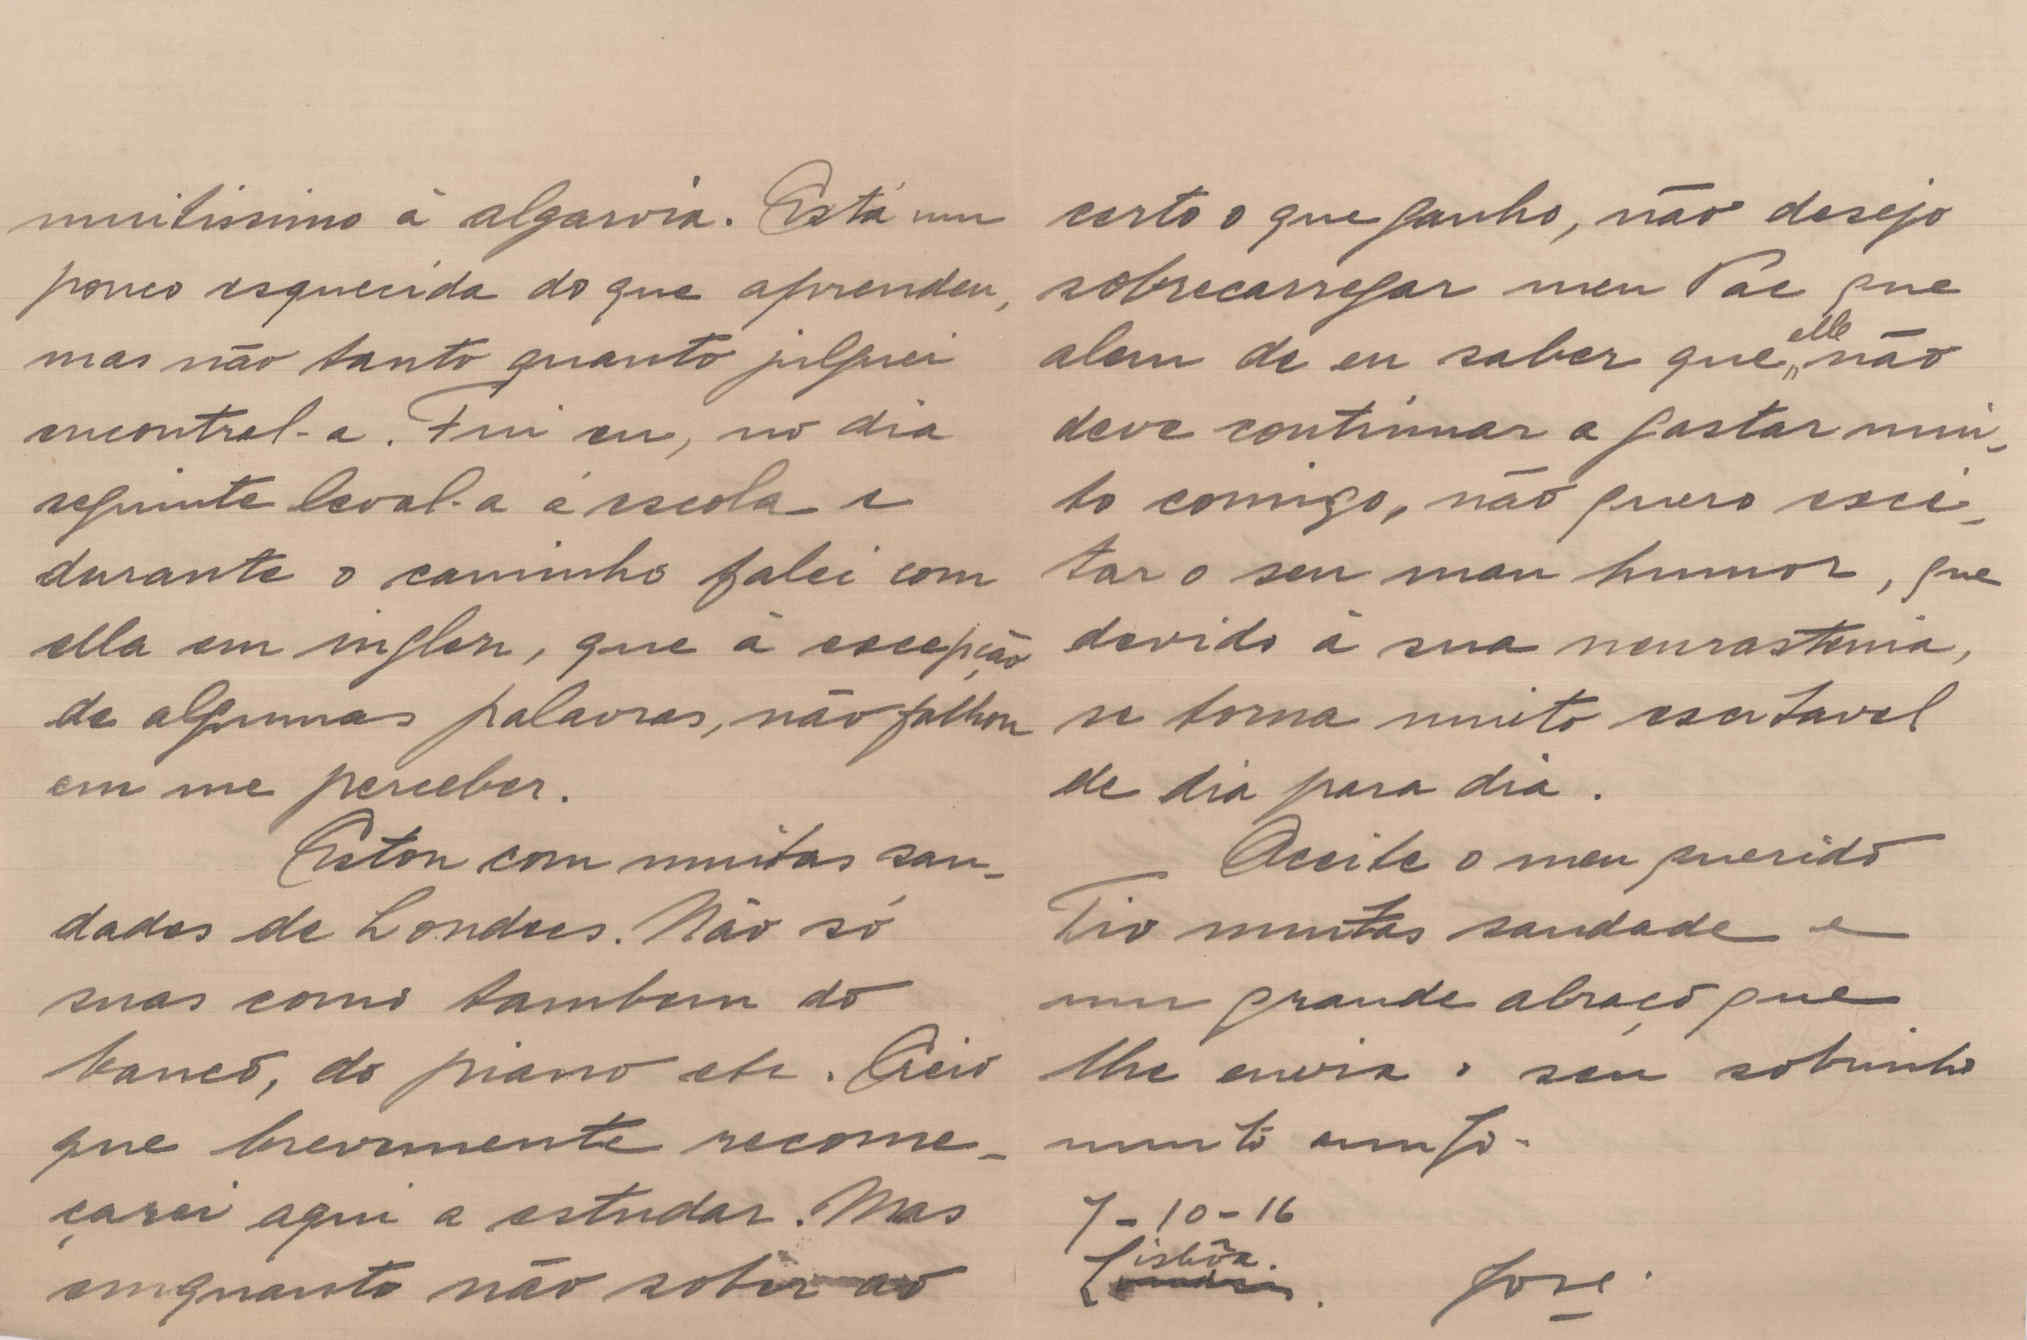 muitissimo á algarvia. Está um
pouco esquecida do que aprendeu,
mas não tanto quanto julguei
encontral-a. Fui eu, no dia
seguinte leval-a á escola e
durante o caminho falei com
ella em inglez, que á excepção
de algumas palavras, não falhou
em me perceber.
Estou com muitas sau-
dades de Londres. Não só
suas como tambem do
banco, do piano etc. Creio
que brevemente recome-
çarei aqui a estudar. Mas
emquanto não souber ao
certo o que ganho, não desejo
sobrecarregar meu Pae que
alem de eu saber que elle não
deve continuar a gastar mui-
to comigo, não quero exci-
tar o seu mau humor, que
devido á sua neurastenia,
se torna muito excitavel
de dia para dia.
Aceite o meu querido
Tio muitas saudade e
um grande abraço que
lhe envia o seu sobrinho
muito amigo.
7-10-16
Lisbôa.
José.